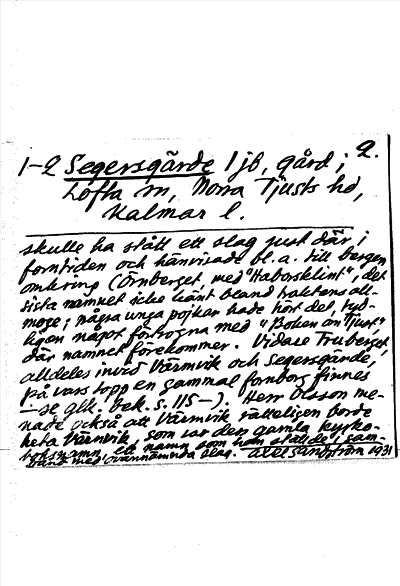 2.
1-2 Segersgärde 1 jb, gård i
Lofta sn, Norra Tjusts hd,
Kalmar l.
skulle ha stått ett slag just där i
forntiden och hänvisade bl.a. till bergen
omkring (Örnberget med "Haborsklint", det
sista namnet icke känt bland traktens all-
moge; några unga pojkar hade hört det, tyd-
ligen något förtrogna med "Boken om Tjust",
där namnet förekommer. Vidare Truberget,
alldeles invid Värmvik och Segersgärde,
på vars topp en gammal fornborg finnes
— se glk. bek. s. 115 —). Herr Olsson me-
nade också att Värmvik rätteligen borde
heta Värnvik, som var den gamla kyrko-
boksnamn, ett namn som han ställde i sam-
band med ovannämnda slag. Axel Sandström 1931